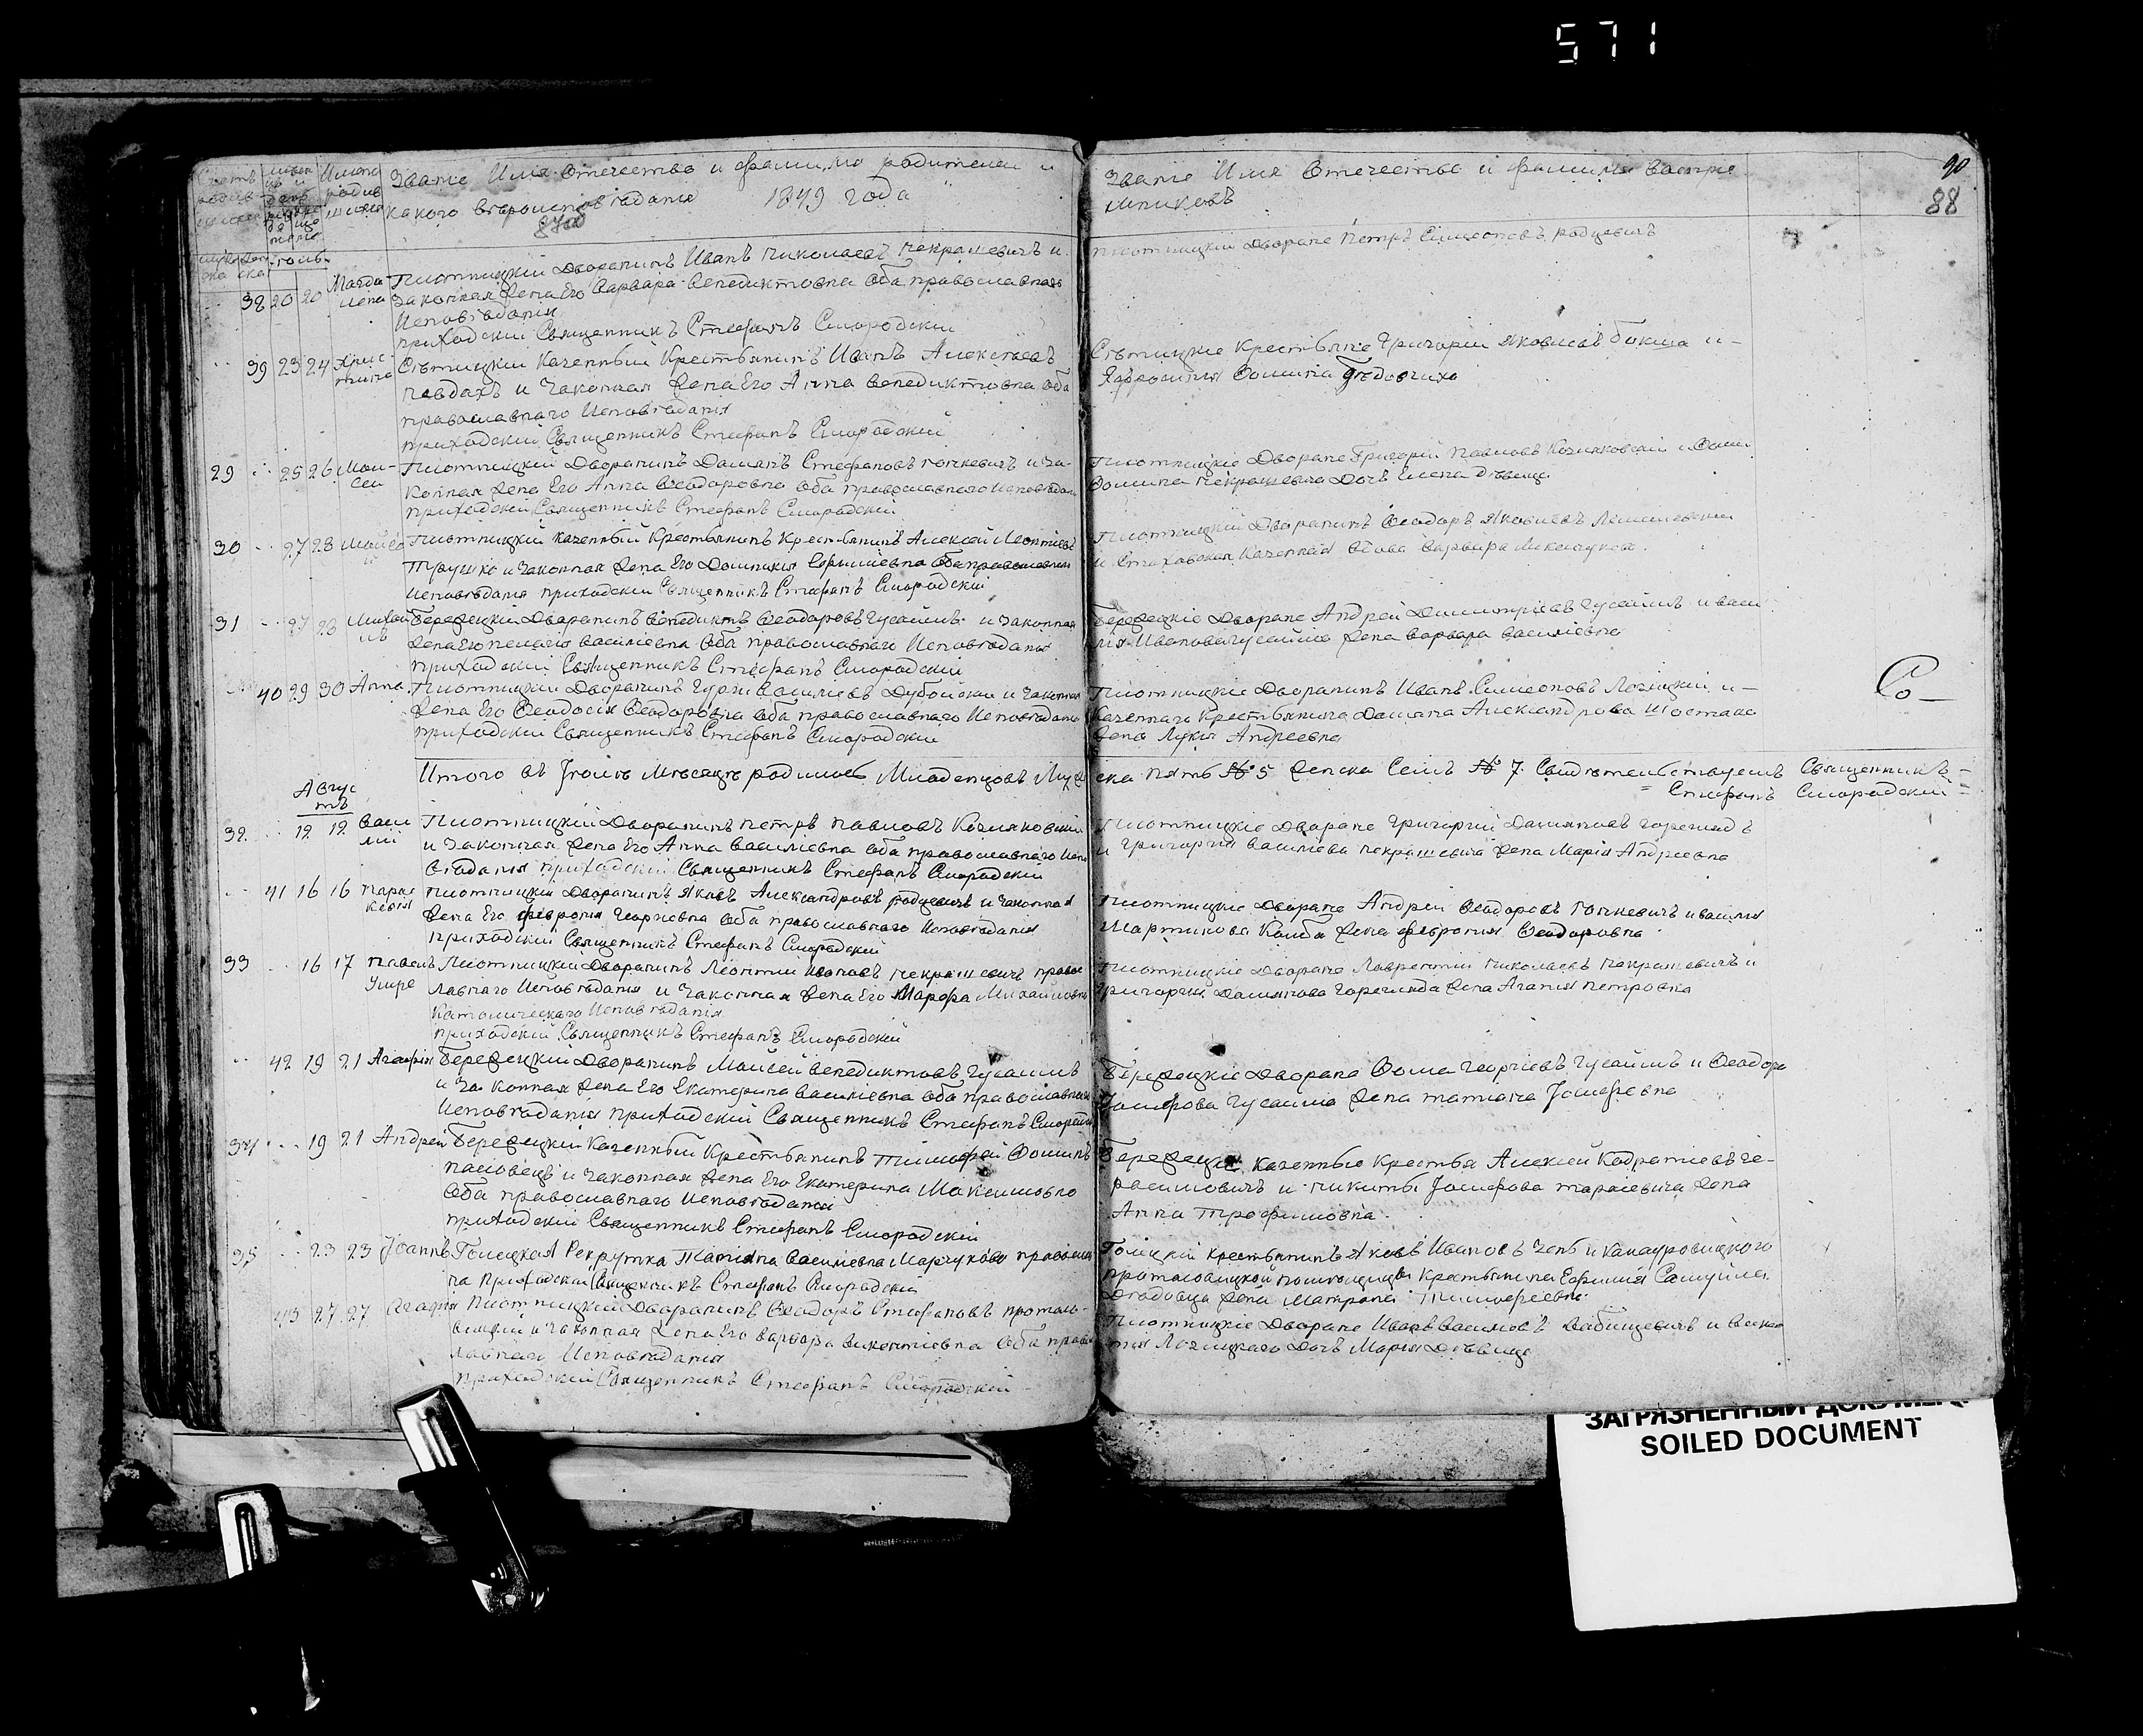 571
90
88
Званіе Имя Отечество и фамилія родителей и
какого вероисповѣданія 1849 года
Званіе Имя Отечество и фамилія восприе
мниковъ
Іюль
38 20 20 Магда
лена
Плотницкій Дворанинъ Иванъ Николаевъ Некрашевичъ и
Законная жена Его Варвара Венедиктовна оба православнаго
Исповѣданія
приходскій Священникъ Стефанъ Смородскій
Плотницкій Дворане Петръ Симеоновъ Родцевичъ
39 23 24 Хрис-
тина
Казенный Крестьянинъ Иванъ Алексеевъ
и Законная жена Его Анна Венедиктовна оба
православнаго Исповѣданія
приходскій Священникъ Стефанъ Смородскій
Крестьяне Григорій Яковлевъ Бокша и-
29 25 26 Мои-
сей
Плотницкій Дворанинъ Даміанъ Стефановъ Гочкевичъ и За-
конная жена Его Анна Ѳеодоровна оба православнаго Исповѣдан
приходскій Священникъ Стефанъ Смородскій
Плотницкіе Дворане Григорій Павловъ Козляковскій и
Ѳомина Некрашевича Дочъ Елена Дѣвица
30 27 28
Плотницкій казенный Крестьянинъ Крестьянинъ Алексей Леонтіевъ
Трушко и Законная жена Его Домникія Ефиміевна оба православнаго
Исповѣданія приходскій Священникъ Стефанъ Смородскій
Плотницкій Дворанинъ Ѳеодоръ Яковлевъ
Казенная Вдова Варвара
31 27 28 Михаи
лъ
Бережецкій Дворанинъ Венедиктъ Ѳеодоровъ Гусаимъ и Законная
жена Его Пелагія Василіевна оба православнаго Исповѣданія
приходскій Священникъ Стефанъ Смородскій
Бережецкіе Дворане Андрей Димитріевъ Гусаимъ и Васи
лія Иванова Гусаима жена Варвара Василіевна
40 29 30 Анна
Плотницкій Дворанинъ Гурій Василіевъ Дубойскій и Законная
жена Его Ѳеодосія Ѳеодоровна оба православнаго Исповѣданія
приходскій Священникъ Стефанъ Смородскій
Плотницкіе Дворанинъ Иванъ Симеоновъ Лозицкій и-
Казеннаго Крестьянина Даміана Александрова Шостака
жена Лукія Андреевна
Со-
Итого въ Іюль Мѣсяцѣ родилось Младенцовъ Муж
ска пять № 5 женска Семь № 7. Свидѣтельствуемъ Священникъ
Стефанъ Смородскій
Авгус
тъ
32 12 12 Васи
лій
Плотницкій Дворанинъ Петръ Павловъ Козляковскій
и Законная жена Его Анна Василіевна оба православнаго Испо
вѣданія приходскій Священникъ Стефанъ Смородскій
Плотницкіе Дворане Григорій Даміановъ Гореглядъ
и Григорія Василіева Некрашевича жена Марія Андреевна
41 16 16 Парас
кевія
Плотницкій Дворанинъ Яковъ Александровъ Родцевичъ и Законная
жена Его Февронія Георгіевна оба православнаго Исповѣданія
приходскій Священникъ Стефанъ Смородскій
Плотницкіе Дворане Андрей Ѳеодоровъ Гочкевичъ и Василія
Мартинова Колба жена Февронія Ѳеодоровна
33 16 17 Павелъ
Умре
Плотницкій Дворанинъ Леонтій Ивановъ Некрашевичъ право
лавнаго Исповѣданія и Законная жена Его Марфа Михайловна
Католическаго Исповѣданія
приходскій Священникъ Стефанъ Смородскій
Плотницкіе Дворане Лаврентій Николаевъ Некрашевичъ и
Григорія Даміанова Горегляда жена Агапія Петровна
42 19 21 Агафія
Бережецкій Дворанинъ Моисей Венедиктовъ Гусаимъ
и Законная жена Его Екатерина Василіевна оба православнаго
Исповѣданія приходскій Священникъ Стефанъ Смородскій
Бережецкіе Дворане Ѳома Георгіевъ Гусаимъ и Ѳеодора
Іосифова Гусаима жена Татіана Іосифовна
34 19 21 Андрей
Бережецкій Казенный Крестьянинъ Тимофей Ѳоминъ
и Законная жена Его Екатерина Максимовна
оба православнаго Исповѣданія
приходскій Священникъ Стефанъ Смородскій
Казенные Крестья Алексей Кодратіевъ Ге-
расимовичъ и Никиты Іосифова Тарасевича жена
Анна Трофимовна
35 23 23 Іоаннъ
Голецкая Рекрутка Татіана Василіевна Марчукова православ
на приходскій Священникъ Стефанъ Смородскій
Голецкій крестьянинъ Яковъ Ивановъ
жена Матрона Тимофеевна
43 27 27 Агафія
Плотницкій Дворанинъ Ѳеодоръ Стефановъ Протасо-
вицкій и Законная жена Его Варвара Викентіевна оба право
лавнаго Исповѣданія
приходскій Священникъ Стефанъ Смородскій
Плотницкіе Дворане Иванъ Василіевъ Бабищевичъ и
Лозицкаго Дочъ Марія Дѣвица
ЗАГРЯЗНЕННЫЙ ДОКУМЕНТ
SOILED DOCUMENT